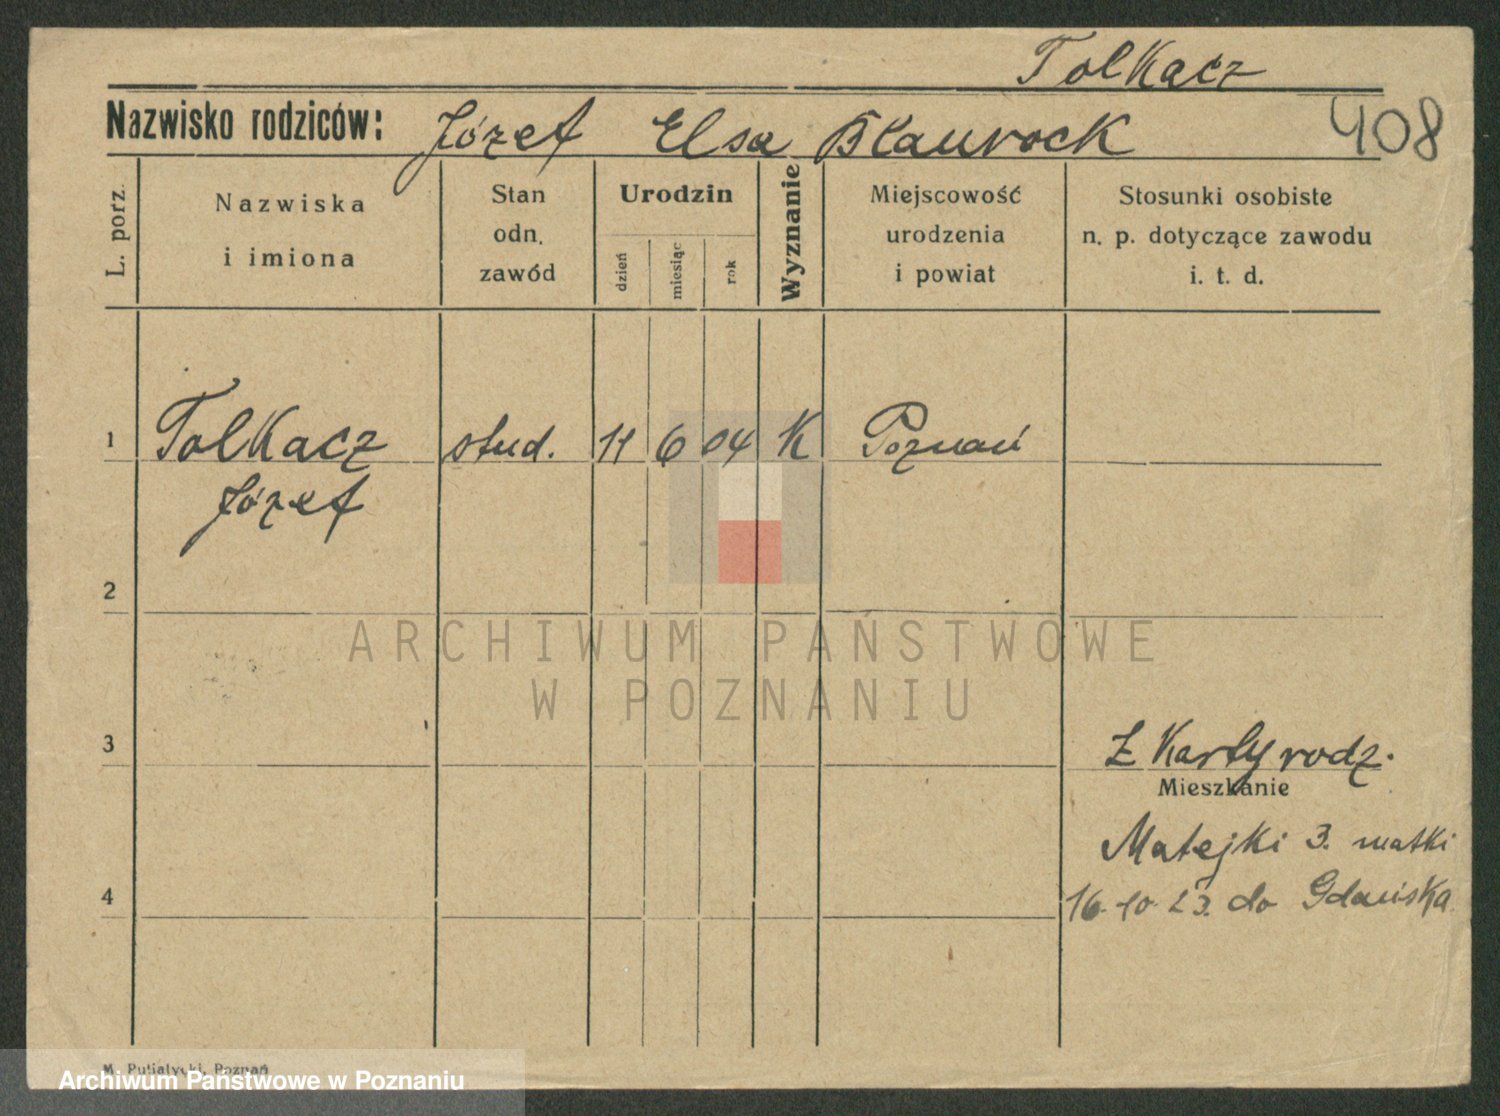 Tolkacz
Nazwisko rodziców: Józef Elsa Blaurock
408
L. porz.
Nazwiska
i imiona
Stan
odn.
zawód
Urodzin
dzień
miesiąc
rok
Wyznanie
Miejscowość
urodzenia
i powiat
Stosunki osobiste
n. p. dotyczące zawodu
i. t. d.
1 Tolkacz stud. 11 6 04 K Poznań
Józef
2
ARCHIWUM PAŃSTWOWE
W POZNANIU
3
Z Karty rodz.
Mieszkanie
Matejki 3. matki
4
16.10.23. do Gdańska
M. Putiatycki, Poznań
Archiwum Państwowe w Poznaniu